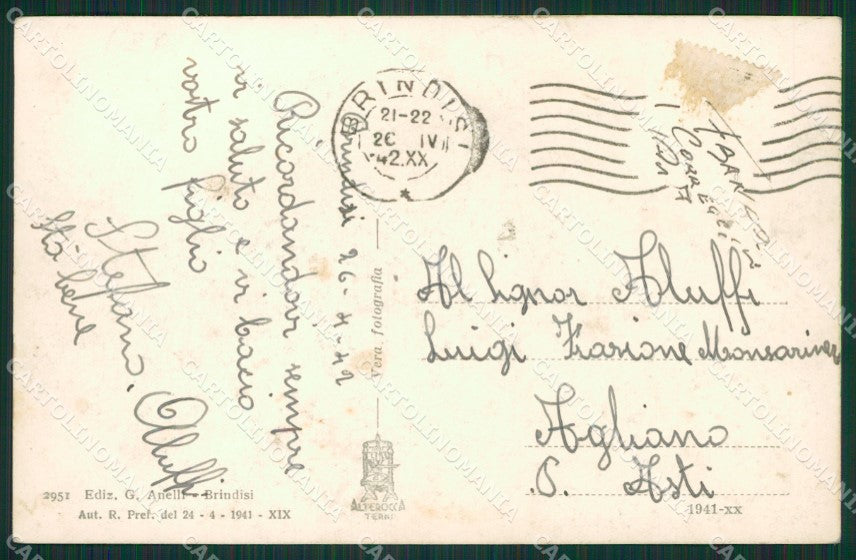 Brindisi 26-4-42
Ricordandovi sempre
vi saluto e vi bacio
vostro figlio
Stefano Aluffi
Sta bene
BRINDISI
21-22
26 IV
42.XX
Al Signor Aluffi
Luigi Frazione Monsariner
Agliano
P. Asti
Vera fotografia
ALTEROCCA
TERNI
1941-XX
2951 Ediz. G. Anelli - Brindisi
Aut. R. Pref. del 24 - 4 - 1941 - XIX
CARTOLINOMANIA